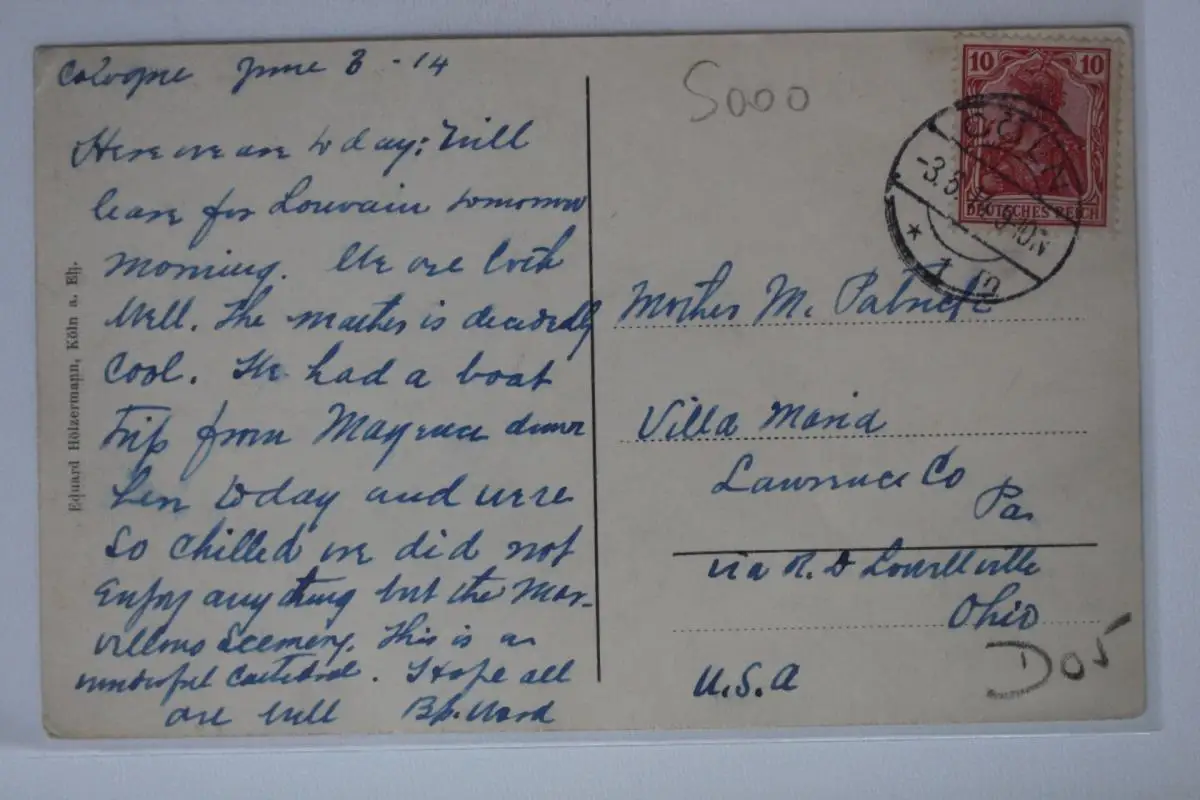 Cologne June 3 - 14
Here we are today; Will
leave for Louvain tomorrow
morning. We are both
Well. The weather is decidedly
Cool. We had a boat
trip from Mayence down
here today and were
So chilled we did not
Enjoy any thing but the Mar-
vellous Scenery. This is a
wonderful Cathedral. I hope all
are well Bp. Ward
Eduard Hölzermann, Köln a. Rh.
5000
10 10
DEUTSCHES REICH
CÖLN
9-10N
Mother M. Patrick
Villa Maria
Lawrence Co
Pa.
via R. D Lowellville
Ohio
U.S.A
D05